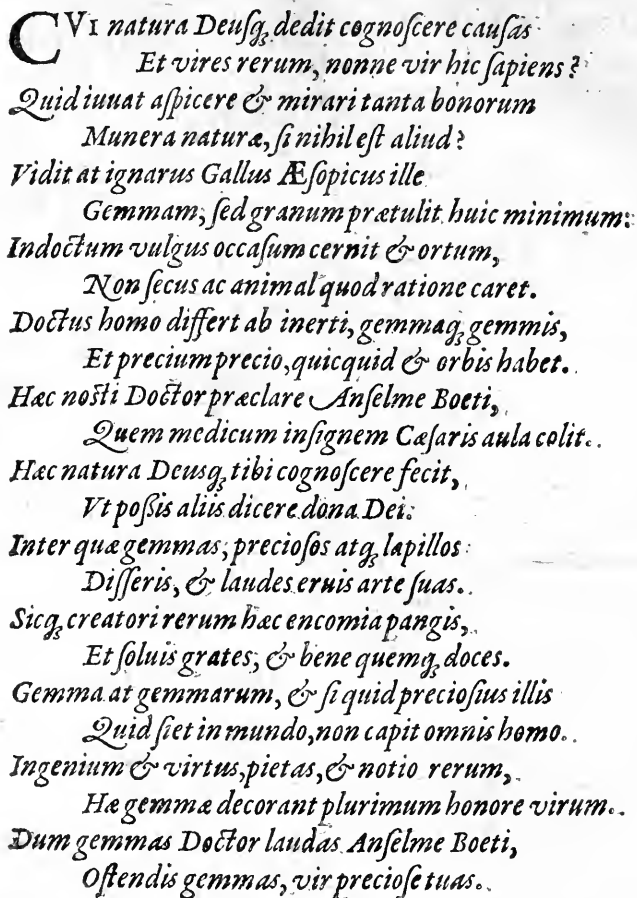 CVI natura Deuſq́; dedit cognoſcere cauſas
Et vires rerum, nonne vir hic ſapiens?
Quid iuuat aſpicere & mirari tanta bonorum
Munera naturæ, ſi nihil eſt aliud?
Vidit at ignarus Gallus Æſopicus ille
Gemmam, ſed granum prætulit huic minimum:
Indoctum vulgus occaſum cernit & ortum,
Non ſecus ac animal quod ratione caret.
Doctus homo differt ab inerti, gemmaq́; gemmis,
Et precium precio, quicquid & orbis habet.
Hæc noſti Doctor præclare Anſelme Boeti,
Quem medicum inſignem Cæſaris aula colit.
Hæc natura Deuſq́; tibi cognoſcere fecit,
Vt poſsis aliis dicere dona Dei:
Inter quæ gemmas, precioſos atq́; lapillos
Diſſeris, & laudes eruis arte ſuas.
Sicq́; creatori rerum hæc encomia pangis,
Et ſoluis grates, & bene quemq́; doces.
Gemma at gemmarum, & ſi quid precioſius illis
Quid ſiet in mundo, non capit omnis homo.
Ingenium & virtus, pietas, & notio rerum,
Hæ gemmæ decorant plurimum honore virum.
Dum gemmas Doctor laudas Anſelme Boeti,
Oſtendis gemmas, vir precioſe tuas.